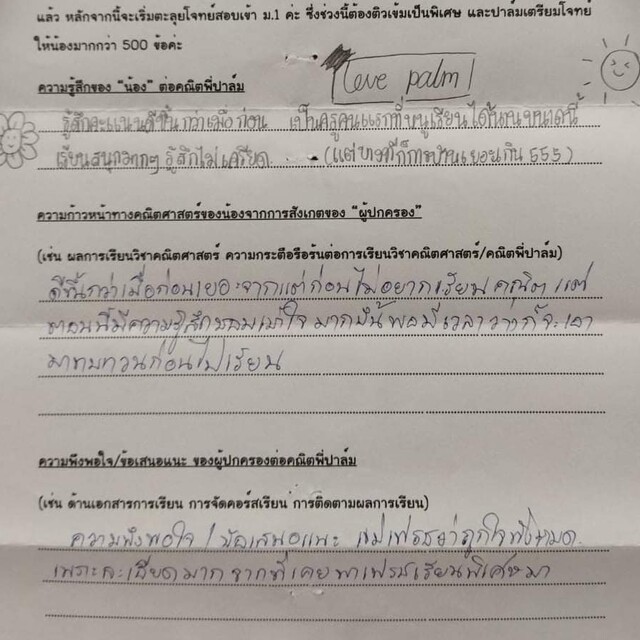 แล้ว หลักจากนี้จะเริ่มตะลุยโจทย์สอบเข้า ม.1 ค่ะ ซึ่งช่วงนี้ต้องติวเข้มเป็นพิเศษ และปาล์มเตรียมโจทย์
ให้น้องมากกว่า 500 ข้อค่ะ
love palm
ความรู้สึกของ "น้อง" ต่อคณิตพี่ปาล์ม
รู้สึกคะแนนดีขึ้นกว่าเมื่อก่อน เป็นครูคนแรกที่หนูเรียนได้นานขนาดนี้
เรียนสนุกมากๆ รู้สึกไม่เครียด..... (แต่บางทีก็การบ้านเยอะเกิน 555)
ความก้าวหน้าทางคณิตศาสตร์ของน้องจากการสังเกตของ "ผู้ปกครอง"
(เช่น ผลการเรียนวิชาคณิตศาสตร์ ความกระตือรือร้นต่อการเรียนวิชาคณิตศาสตร์/คณิตพี่ปาล์ม)
ดีขึ้นกว่าเมื่อก่อนเยอะจากแต่ก่อนไม่อยากเรียนคณิต แต่
ตอนนี้มีความรู้สึกชอบเข้าใจมากขึ้นพอมีเวลาว่างก็จะเอา
มาทบทวนก่อนไปเรียน
ความพึงพอใจ/ข้อเสนอแนะ ของผู้ปกครองต่อคณิตพี่ปาล์ม
(เช่น ด้านเอกสารการเรียน การจัดคอร์สเรียน การติดตามผลการเรียน)
ความพึงพอใจ / ข้อเสนอแนะ แม่เฟรชว่าถูกใจทั้งหมด
เพราะละเอียดมากจากที่เคยพาเฟรชเรียนพิเศษมา